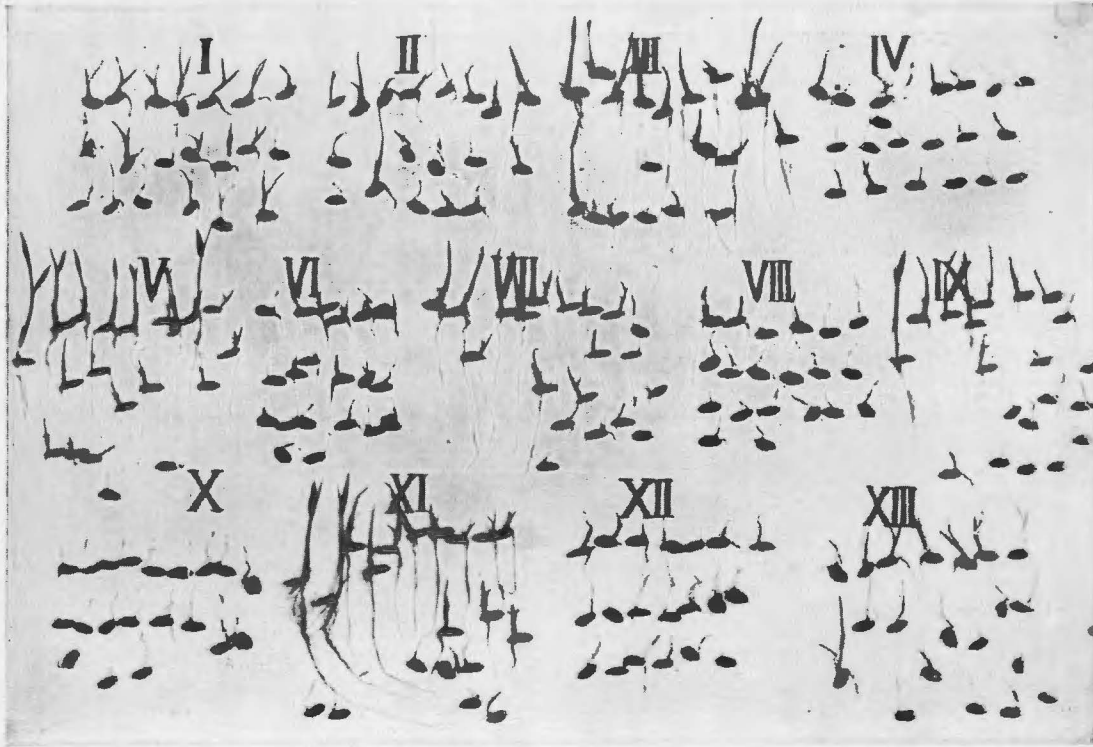 I II III IV
V VI VII VIII IX
X XI XII XIII